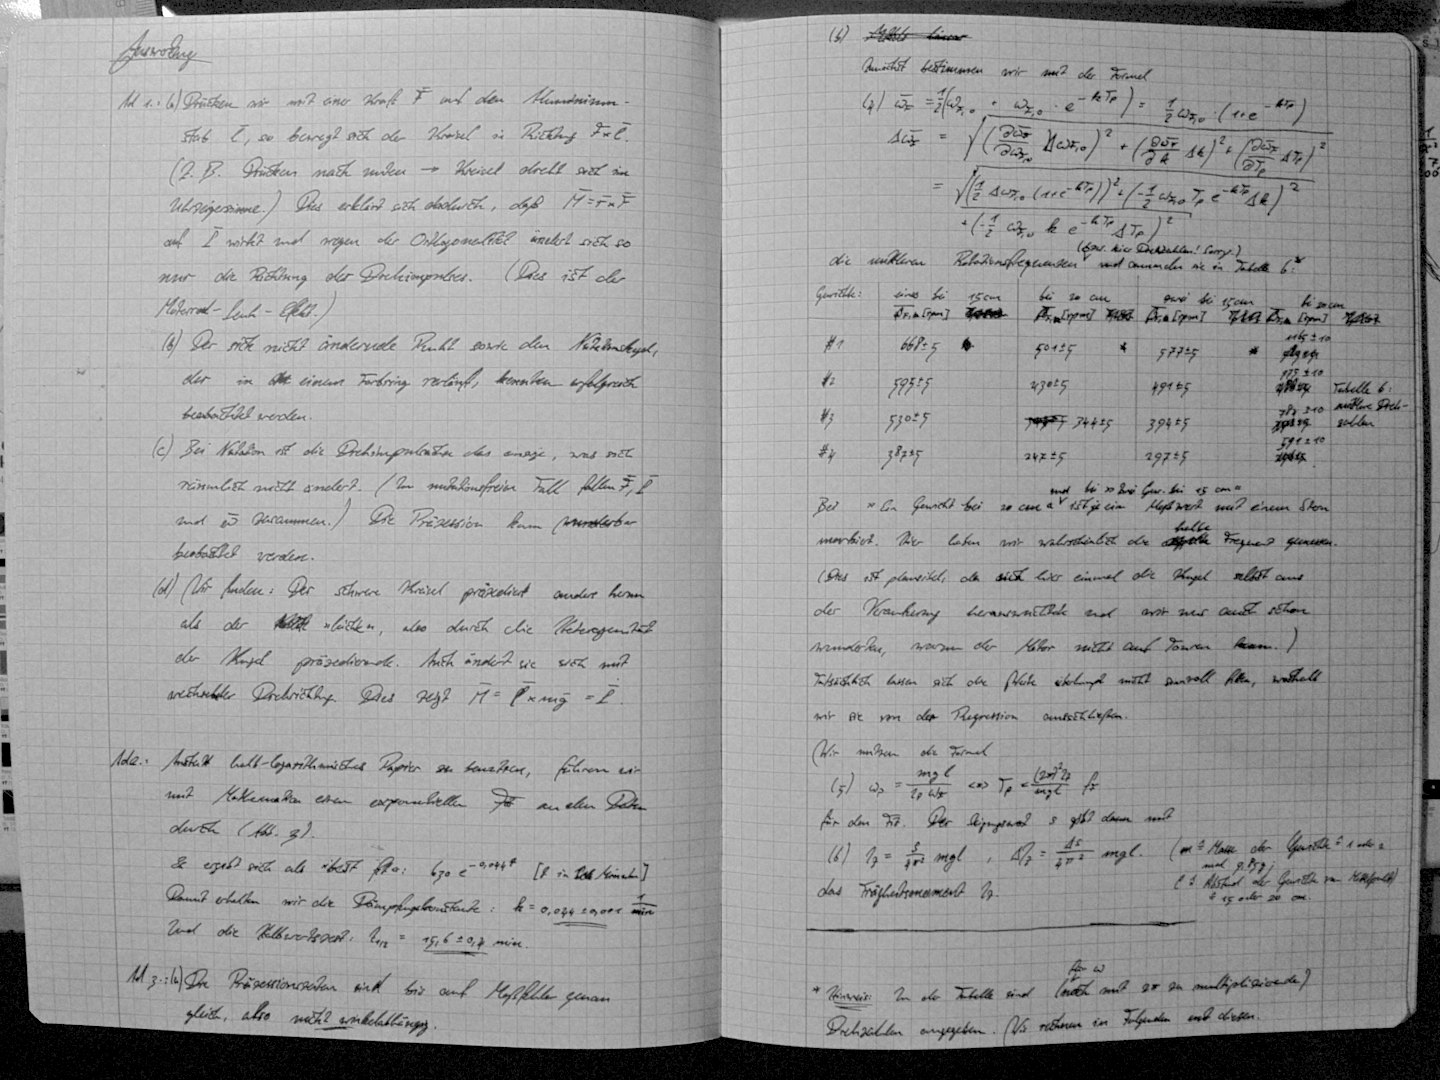 Auswertung
Ad 1.: (a) Drücken wir mit einer Kraft F auf den Aluminium-
stab l, so bewegt sich der Kreisel in Richtung F×l.
(Z. B. Drücken nach unten → Kreisel dreht sich im
Uhrzeigersinne.) Dies erklärt sich dadurch, daß M = r × F
auf L wirkt und wegen der Orthogonalität ändert sich so
nur die Richtung des Drehimpulses. (Dies ist der
Motorrad-Lenk-Effekt.)
(b) Der sich nicht ändernde Punkt sowie den Nutationskegel,
der in einem Farbring verläuft, konnten erfolgreich
beobachtet werden.
(c) Bei Nutation ist die Drehimpulsachse das einzige, was sich
räumlich nicht ändert. (Im nutationsfreien Fall fallen F, L
und ω zusammen.) Die Präzession kann wunderbar
beobachtet werden.
(d) Wir finden: Der schwere Kreisel präzediert anders herum
als der »leichte«, also durch die Heterogenität
der Kugel präzedierende. Auch ändert sie sich mit
Drehrichtung. Dies zeigt M = l × mg = L.
Ad 2.: Anstatt halb-logarithmisches Papier zu benutzen, führen wir
mit Mathematica einen exponentiellen Fit an den Daten
durch (Abb. 2).
Es ergibt sich als »best fit«: 630 e^-0,044t [t in Minuten]
Damit erhalten wir die Dämpfungskonstante: k = 0,044 ± 0,001 1/min
Und die Halbwertszeit: t1/2 = 15,6 ± 0,4 min.
Ad 3.: (a) Die Präzessionszeiten sind bis auf Meßfehler genau
gleich, also nicht winkelabhängig.
(b)
Zunächst bestimmen wir mit der Formel
(4) ω̄F = 1/2 (ωF,0 + ωF,0 · e^-kTp) = 1/2 ωF,0 · (1+e^-kTp)
Δω̄F = √((∂ω̄F/∂ωF,0 ΔωF,0)² + (∂ω̄F/∂k Δk)² + (∂ω̄F/∂Tp ΔTp)²
= √((1/2 ΔωF,0 (1+e^-kTp))² + (-1/2 ωF,0 Tp e^-kTp Δk)²
+ (-1/2 ωF,0 k e^-kTp ΔTp)²
(bzw. hier Drehzahlen! Sorry!)
die mittleren Rotationsfrequenzen und sammeln sie in Tabelle 6:*
Gewichte: eines bei 15cm bei 20 cm zwei bei 15cm bei 20cm
[rpm] [rpm] [rpm] [rpm]
#1 668±5 501±5 * 577±5 * 1165±10
#2 595±5 430±5 491±5 975±10 Tabelle 6:
#3 530±5 344±5 394±5 787±10 mittlere Dreh-
zahlen
#4 387±5 247±5 297±5 591±10
und bei »zwei Gew. bei 15 cm«
Bei »Ein Gewicht bei 20 cm« ist je ein Meßwert mit einem Stern
markiert. Hier haben wir wahrscheinlich die halbe Frequenz gemessen.
(Dies ist plausibel, da hier einmal die Kugel selbst aus
der Verankerung herausrutschte und wir uns auch schon
wunderten, warum der Motor nicht auf Touren kam.)
Tatsächlich lassen sich die Punkte überhaupt nicht sinnvoll fitten, weshalb
wir sie von der Regression ausschließen.
Wir nutzen die Formel
(5) ωp = mgl / IF ωF <=> Tp = (2π)² IF / mgl fF
für den Fit. Der Steigungswert s gibt dann mit
(6) IF = s/4π² mgl, ΔIF = Δs/4π² mgl. (m ≙ Masse der Gewichte ≙ 1 oder 2
das Trägheitsmoment IF. l ≙ Abstand der Gewichte vom Mittelpunkt
≙ 15 oder 20 cm.
für ω
* Hinweis: In der Tabelle sind (noch mit 2π zu multiplizierende)
Drehzahlen angegeben. Wir rechnen im Folgenden mit diesen.